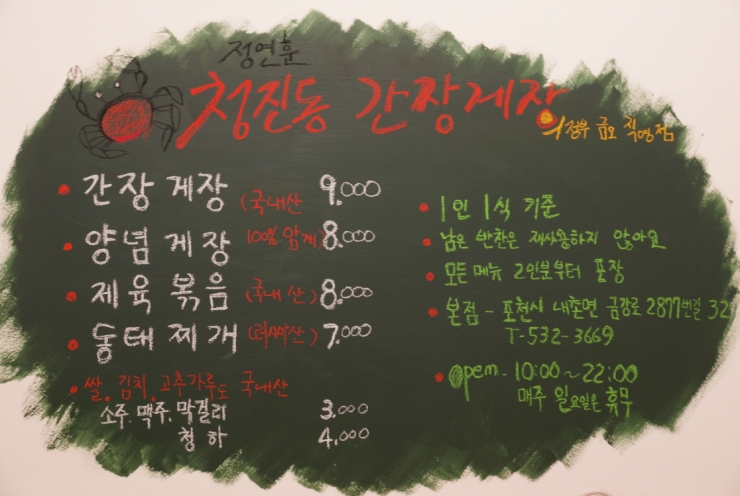 정연훈
청진동 간장게장
의정부 금오 직영점
간장 게장 (국내산 9.000
양념 게장 100% 암게) 8.000
제육 볶음 (국내산) 8.000
동태 찌개 (러시아산) 7.000
쌀, 김치, 고추가루도 국내산
소주. 맥주. 막걸리 3.000
청하 4.000
1인 1식 기준
남은 반찬은 재사용하지 않아요
모든메뉴 2인분부터 포장
본점 - 포천시 내촌면 금강로 2877번길 32
T-532-3669
open - 10:00~22:00
매주 일요일은 휴무